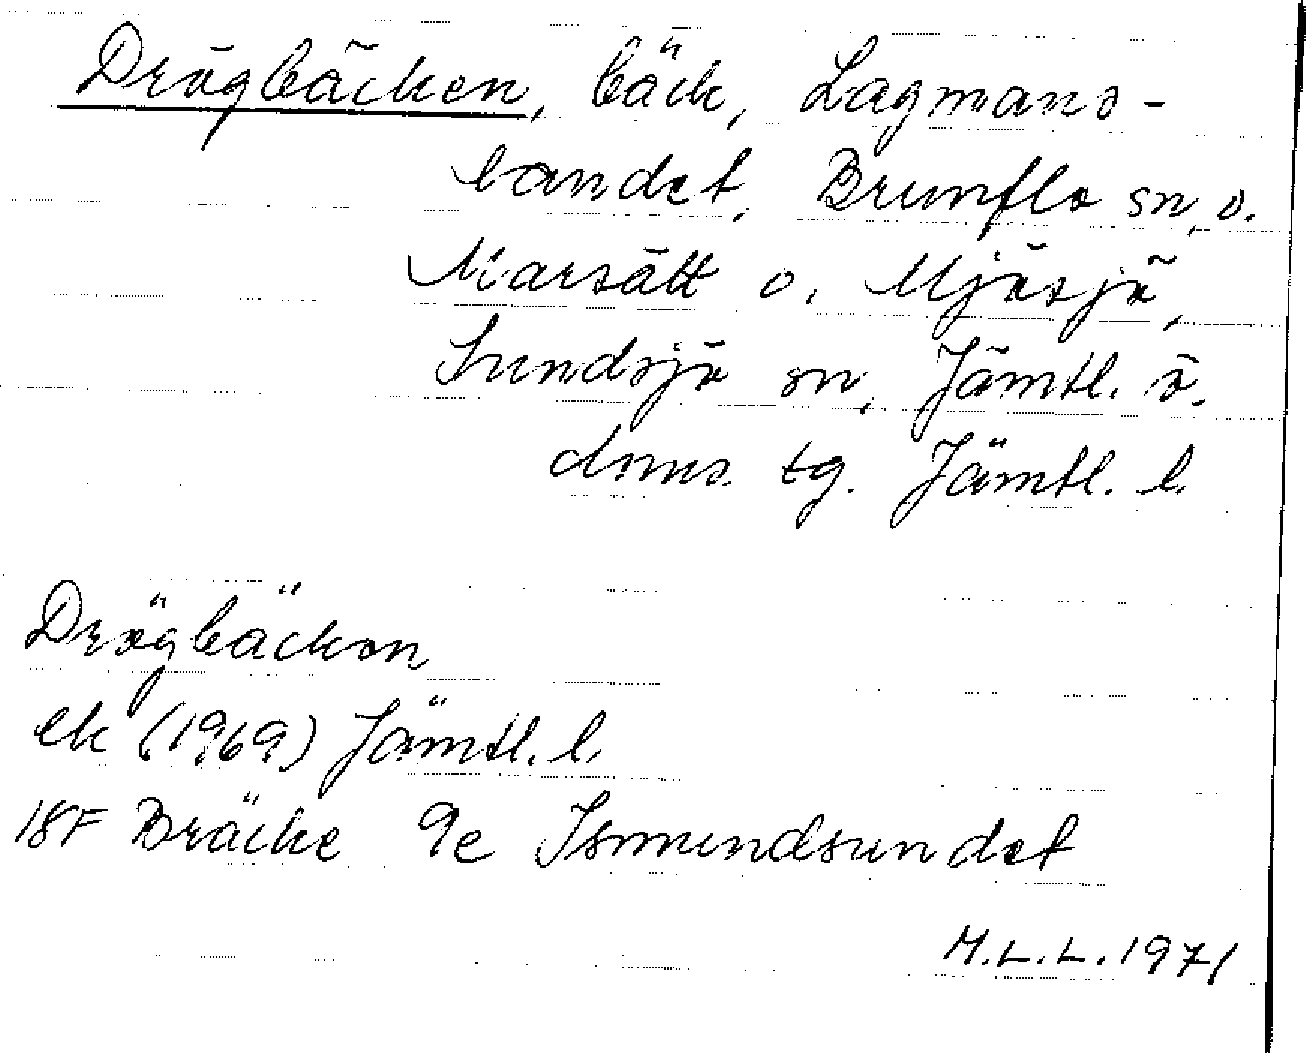 Drögbäcken, bäck, Lagmans-
bandet, Brunflo sn, o.
Marsätt o. Mjösjö,
Sundsjö sn, Jämtl. ö.
doms. tg. Jämtl. l.
Drögbäcken
ek (1969) Jämtl. l.
18F Bräcke 9e Ismundsundet
M.L.L. 1971